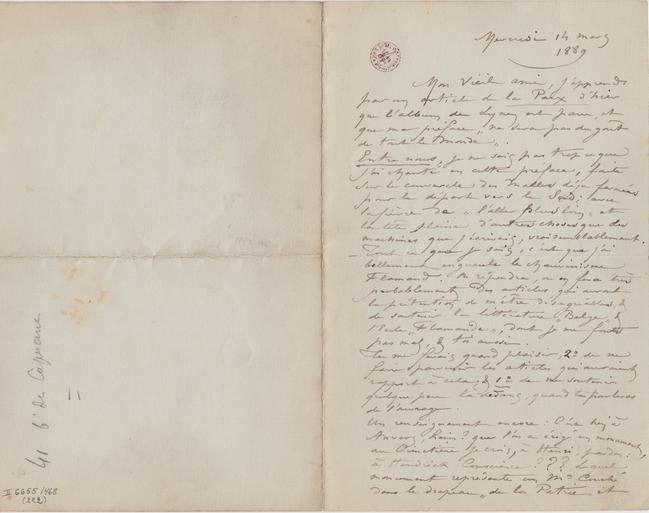 Mercredi 14 mars
1889
Mon vieil ami, j'apprends
par un article de la Paix d'hier
que l'album de Lynen est paru, et
que ma préface "ne sera pas du goût
de tout le monde".
Entre nous, je ne sais pas trop ce que
j'ai chanté en cette préface, faite
sur le couvercle des malles déja fermées
pour le départ vers le Sud; avec
la fièvre de "l'aller plus loin", et
la tête pleine d'autres choses que des
machines que j'écrivais, vraisemblablement.
Tout ce que je sais, c'est que j'ai
bellement engueulé le chauvinisme
Flamand. On répondra, on en fera très
probablement des articles qui auront
la prétention de m'être désagréables, &
de soutenir la littérature "Belge", &
l'Ecole "Flamande", dont je me fouts
pas mal, & toi aussi.
Tu me ferais grand plaisir, 2º de me
faire parvenir les articles qui auraient
rapport à cela, & 1º de me soutenir
quelque peu là dedans, quand tu parleras
de l'ouvrage.
Un renseignement encore: C'est bien à
Anvers, hein? que l'on a érigé un monument,
au Cimetière je crois, à Henri, pardon:
à Hendrick Conscience??? Lequel
monument représente un Mr Couché
dans le drapeau "de la Patrie et
41 b<sup>d</sup> des Capucines
II 6655/468
(222)